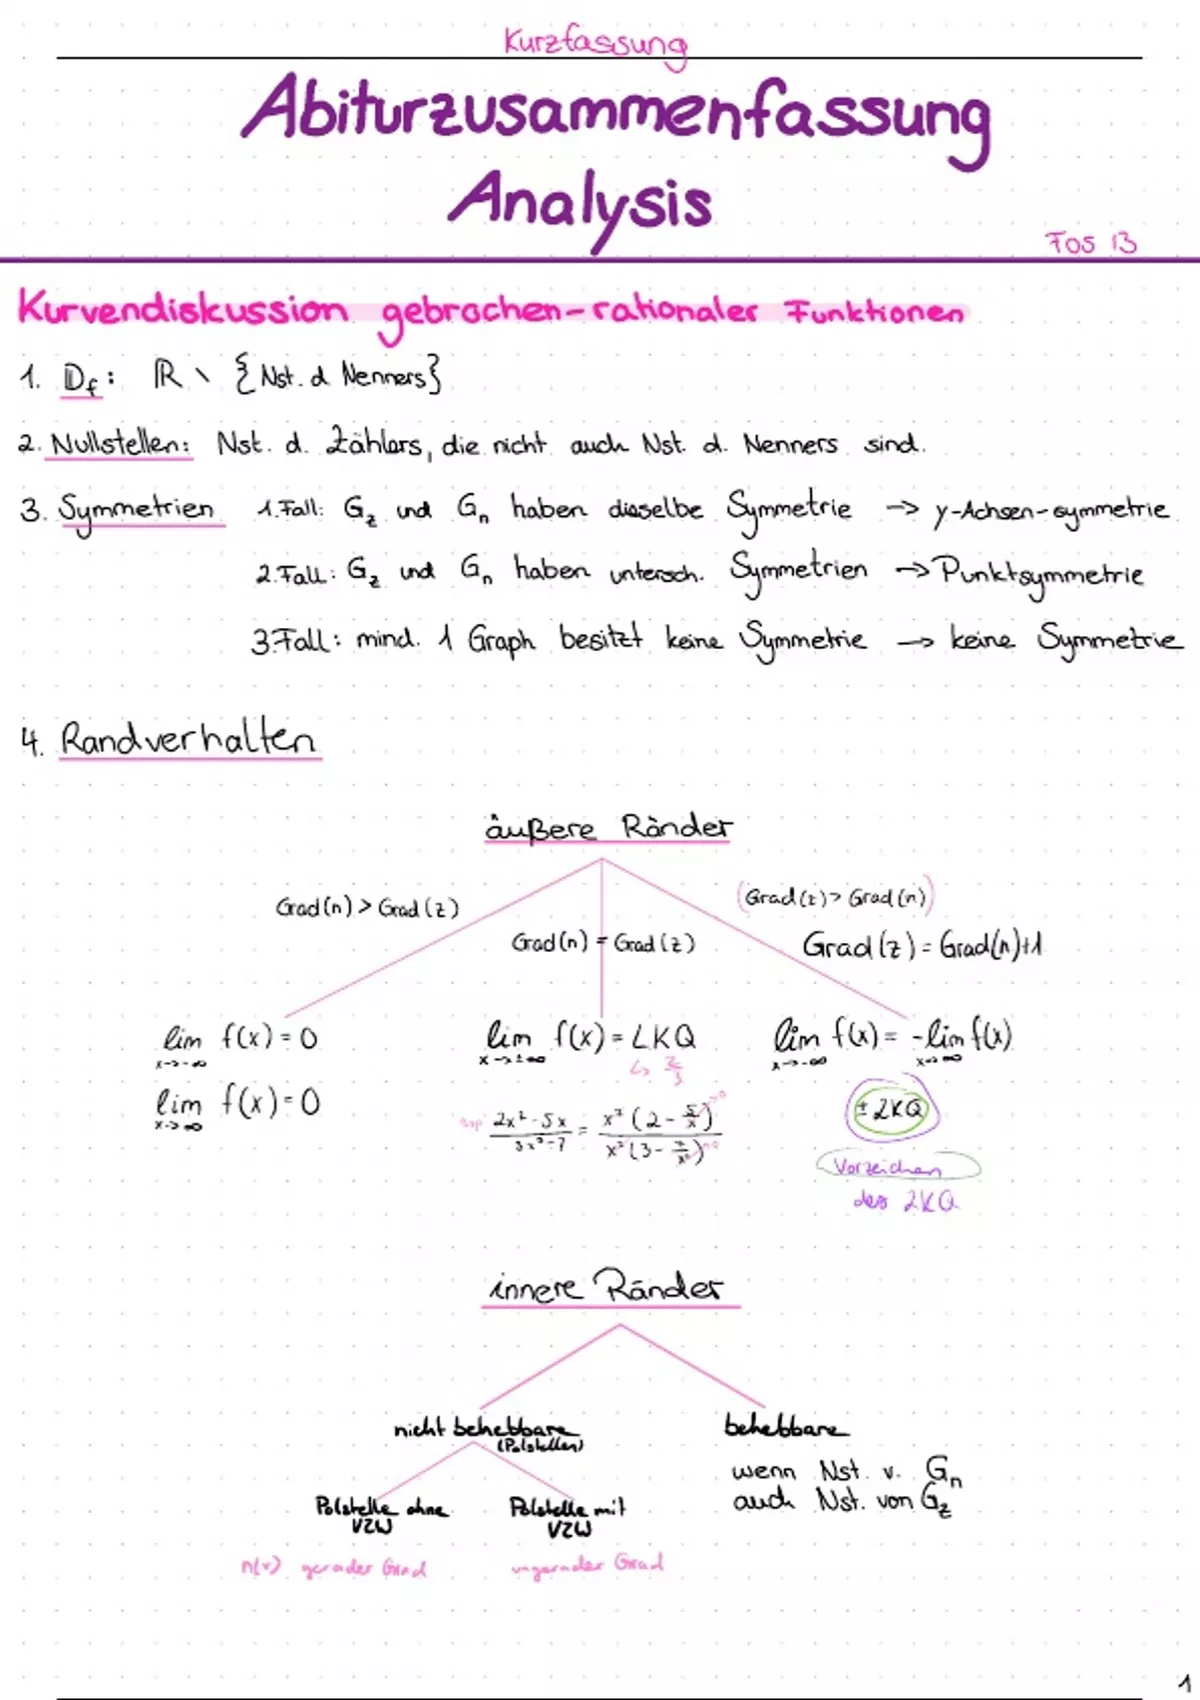 Kurzfassung
Abiturzusammenfassung
Analysis
FOS 13
Kurvendiskussion gebrochen-rationaler Funktionen
1. 𝔻f: ℝ \ {Nst. d Nenners}
2. Nullstellen: Nst. d. Zählers, die nicht auch Nst. d. Nenners sind.
3. Symmetrien 1.Fall: Gz und Gn haben dieselbe Symmetrie → y-Achsen-symmetrie
2.Fall: Gz und Gn haben untersch. Symmetrien → Punktsymmetrie
3.Fall: mind. 1 Graph besitzt keine Symmetrie → keine Symmetrie
4. Randverhalten
äußere Ränder
Grad(n) > Grad(z)
Grad(n) = Grad(z)
(Grad(z) > Grad(n))
Grad(z) = Grad(n)+1
lim f(x) = 0
x→-∞
lim f(x) = 0
x→∞
lim f(x) = LKQ
x→±∞
↳ 2/3
Bsp 2x²-5x / 3x²-7 = x²(2-5/x)→0 / x²(3-7/x²)→0
lim f(x) = -lim f(x)
x→-∞ x→∞
± LKQ
Vorzeichen
des LKQ
innere Ränder
nicht behebbare
(Polstellen)
Polstelle ohne
VZW
n(x) gerader Grad
Polstelle mit
VZW
ungerader Grad
behebbare
wenn Nst. v. Gn
auch Nst. von Gz
1